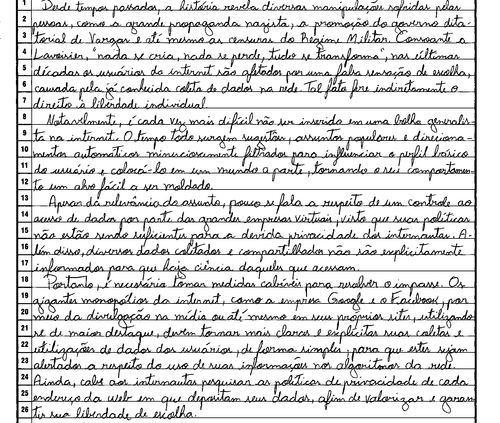 1 Desde tempos passados, a história revela diversas manipulações sofridas pelas
2 pessoas, como a grande propaganda nazista, a promoção do governo dita-
3 torial de Vargas e até mesmo as censuras do Regime Militar. Consoante a
4 Lavoisier, "nada se cria, nada se perde, tudo se transforma", nas últimas
5 décadas os usuários da internet são afetados por uma falsa sensação de escolha,
6 causada pela já conhecida coleta de dados na rede. Tal fato fere indiretamente o
7 direito à liberdade individual.
8 Notavelmente, é cada vez mais difícil não ser inserido em uma bolha generalis-
9 ta na internet. O tempo todo surgem sugestões, assuntos populares e direciona-
10 mentos automáticos minuciosamente filtrados para influenciar o perfil básico
11 do usuário e colocá-lo em um mundo a parte, tornando o seu comportamen-
12 to um alvo fácil a ser moldado.
13 Apesar da relevância do assunto, pouco se fala a respeito de um controle ao
14 acesso de dados por parte das grandes empresas virtuais, visto que suas políticas
15 não estão sendo suficientes para a devida privacidade dos internautas. A-
16 lém disso, diversos dados coletados e compartilhados não são explicitamente
17 informados para que haja ciência daqueles que acessam.
18 Portanto, é necessário tomar medidas cabíveis para resolver o impasse. Os
19 gigantes monopólios da internet, como a empresa Google e o Facebook, por
20 meio da divulgação na mídia ou até mesmo em seus próprios sites, utilizando-
21 se de maior destaque, devem tornar mais claras e explícitas suas coletas e
22 utilizações de dados dos usuários, de forma simples, para que estes sejam
23 alertados a respeito do uso de suas informações nos algoritmos da rede.
24 Ainda, cabe aos internautas pesquisar as políticas de privacidade de cada
25 endereço da web em que depositam seus dados, afim de valorizar e garan-
26 tir sua liberdade de escolha.